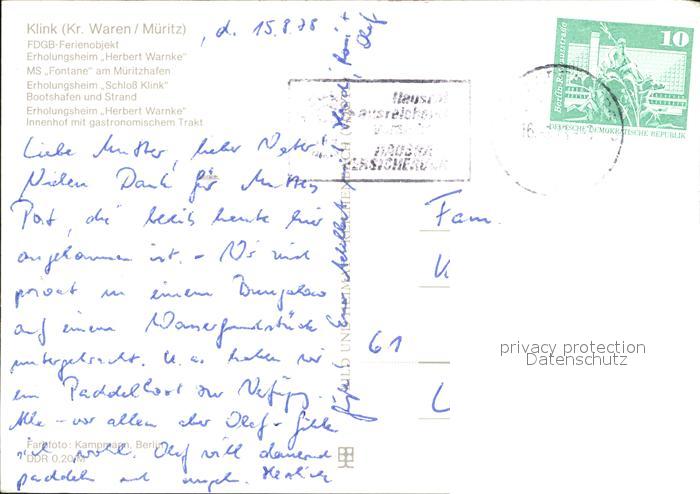 Klink (Kr. Waren / Müritz)
FDGB-Ferienobjekt
Erholungsheim „Herbert Warnke"
MS „Fontane" am Müritzhafen
Erholungsheim „Schloß Klink"
Bootshafen und Strand
Erholungsheim „Herbert Warnke"
Innenhof mit gastronomischem Trakt
, d. 15.8.78
Liebe Mutter, lieber Vater!
Vielen Dank für Mutters
Post, die bereits heute hier
angekommen ist. - Wir sind
privat in einem Bungalow
auf einem Wassergrundstück
untergebracht. U. a. haben wir
ein Paddelboot zur Verfügg.
Alle - vor allem aber Olaf - fühlen
sich wohl. Olaf will dauernd
paddeln und angeln. Herzlich
grüßen Euch
Olaf
Farbfoto: Kampmann, Berlin
DDR 0,20 M
BILD UND HEIMAT REICHENBACH
10
Berlin-Rathausstraße
DEUTSCHE DEMOKRATISCHE REPUBLIK
Hausrat
ausreichend
HAUSRAT
VERSICHERUNG
16
Fam.
V
61
L
privacy protection
Datenschutz